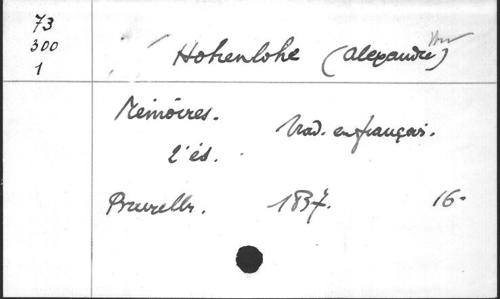 73
300
1
Hohenlohe (Alexandre)
Mémoires. Trad. en français.
2e éd.
Bruxelles. 1837. 16°